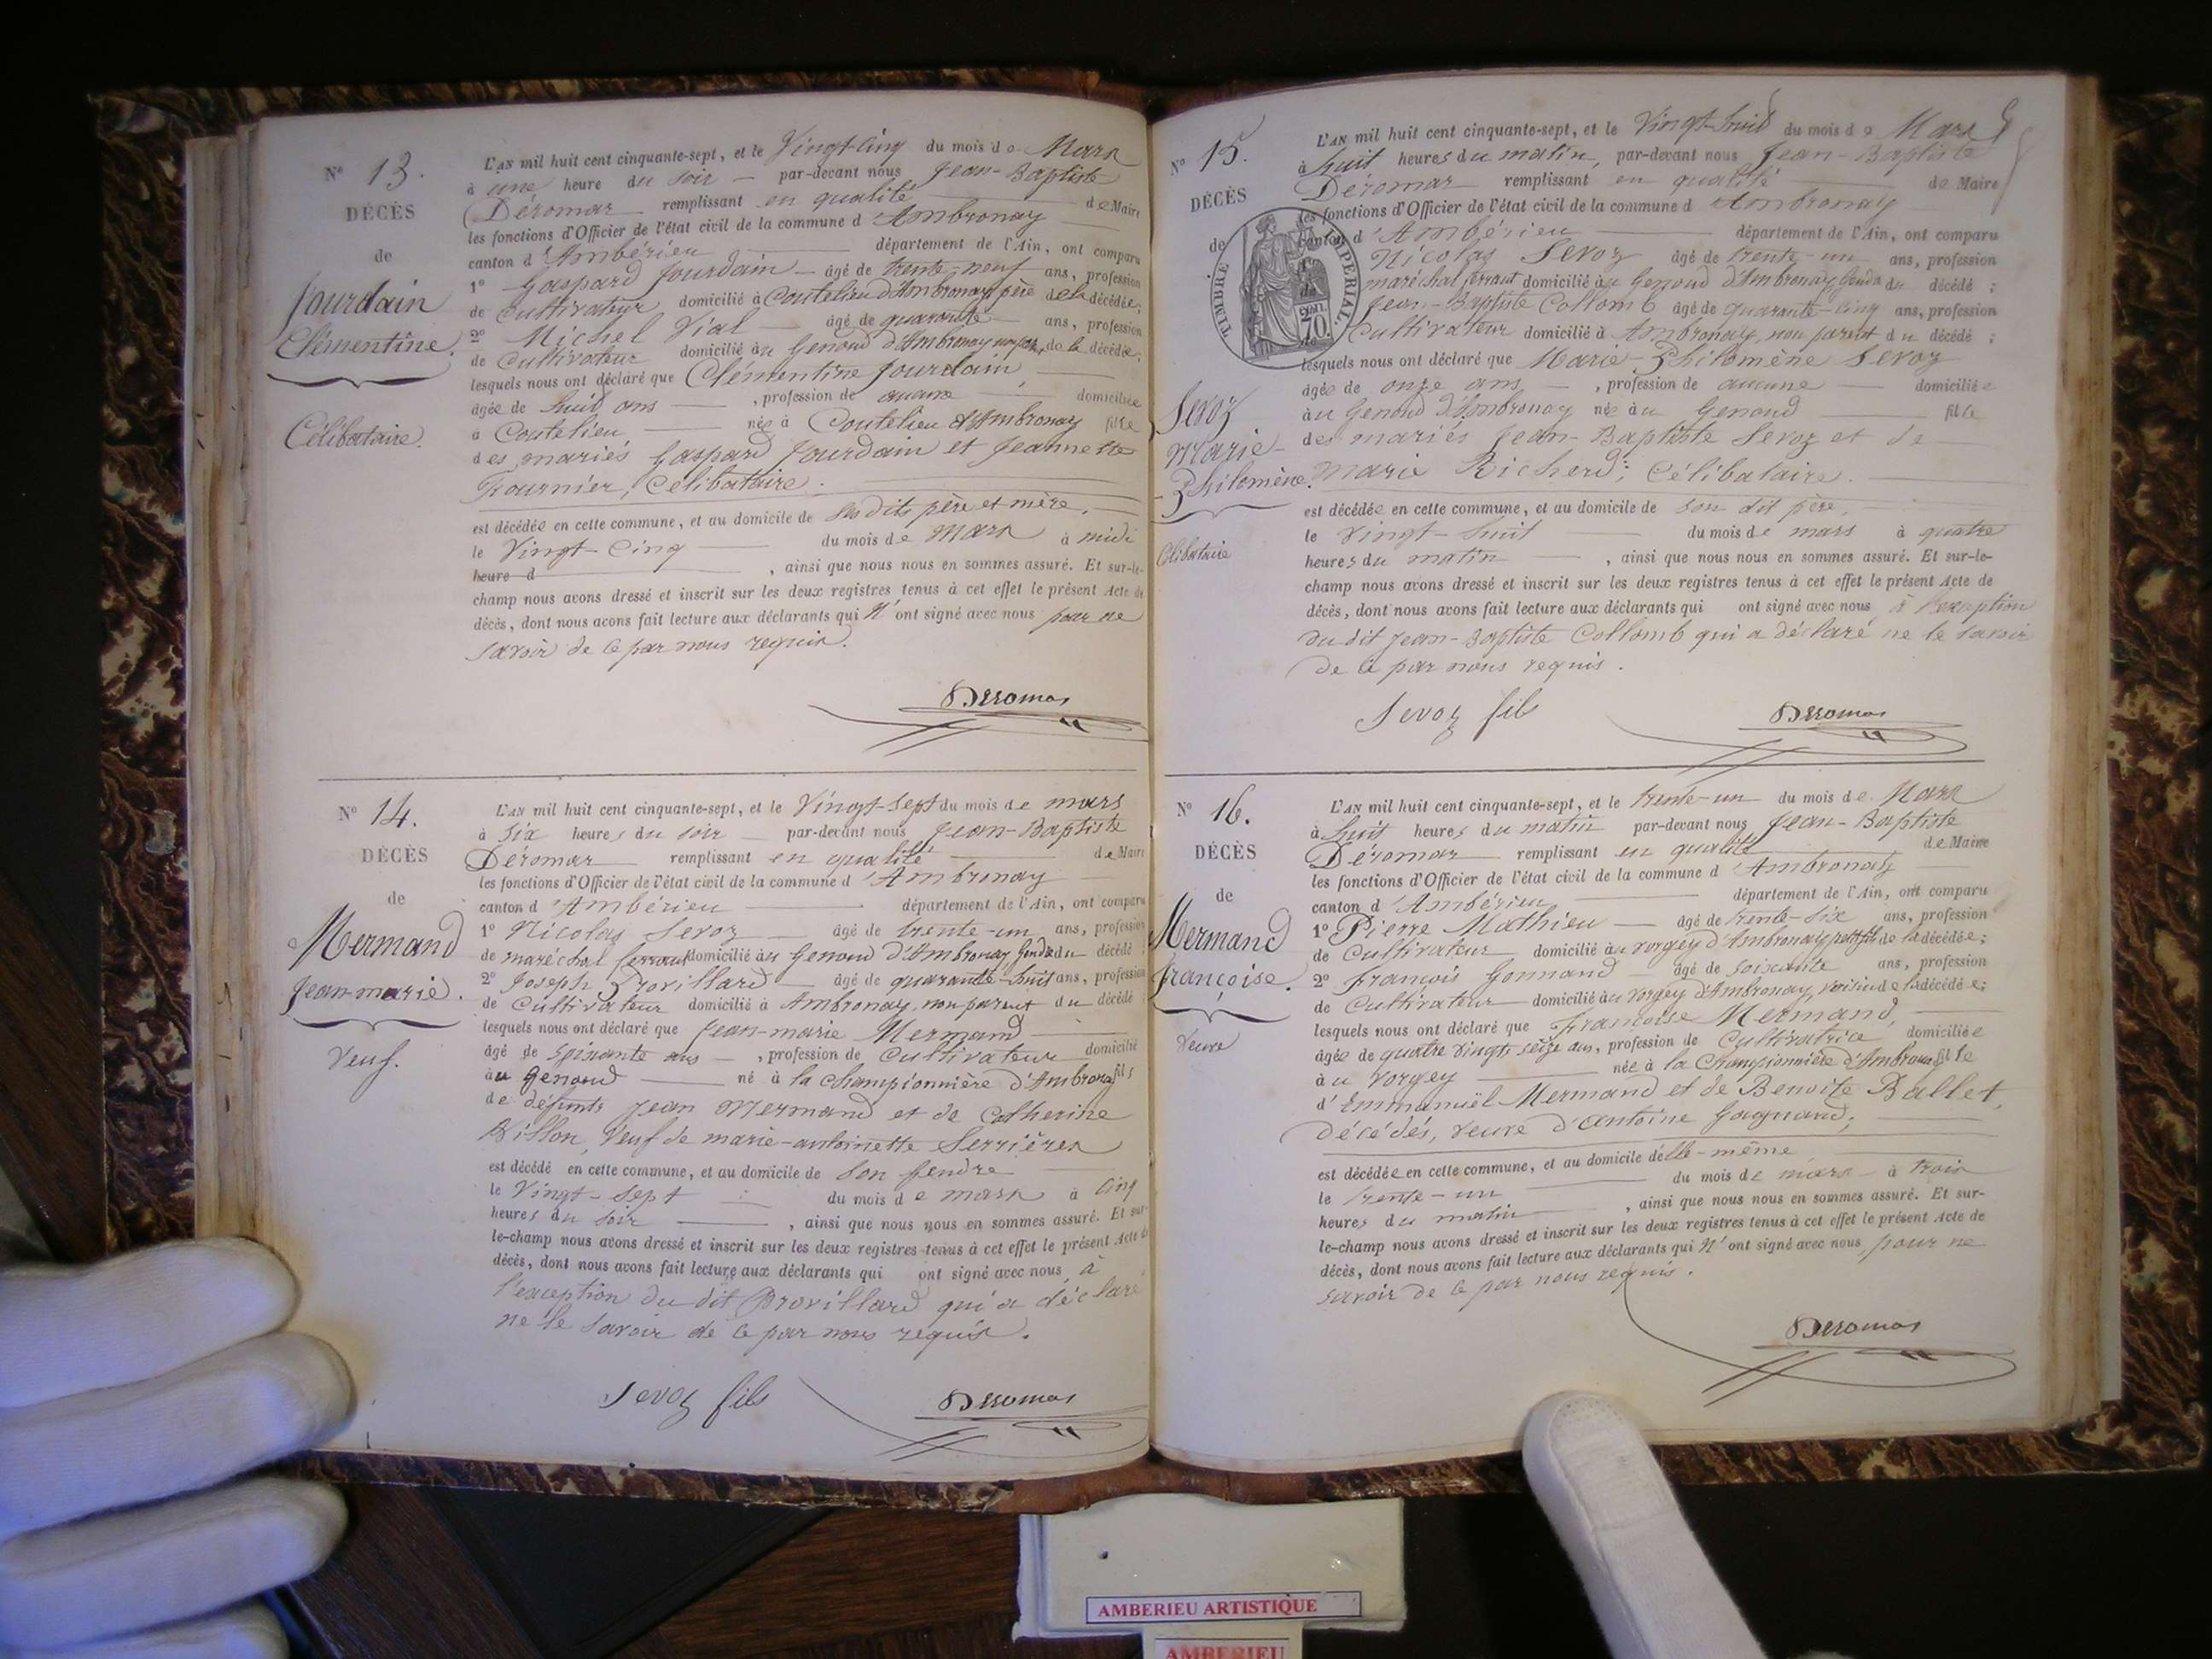 N° 13.
DÉCÈS
de
Jourdain
Clémentine.
Célibataire.
L'AN mil huit cent cinquante-sept, et le Vingt-cinq du mois de Mars
à une heure du soir par-devant nous Jean-Baptiste
Déromas remplissant en qualité de Maire
les fonctions d'Officier de l'état civil de la commune d'Ambronay
canton d'Ambérieu département de l'Ain, ont comparu
1° Gaspard Jourdain âgé de trente-neuf ans, profession
de Cultivateur domicilié à Coutelieu d'Ambronay père de la décédée;
2° Michel Vial âgé de quarante ans, profession
de Cultivateur domicilié au Genoud d'Ambronay de la décédée;
lesquels nous ont déclaré que Clémentine Jourdain,
âgée de huit ans, profession de aucune domiciliée
à Coutelieu née à Coutelieu d'Ambronay fille
des mariés Gaspard Jourdain et Jeannette
Fournier, Célibataire.
est décédée en cette commune, et au domicile de ses dits père et mère,
le Vingt-Cinq du mois de Mars à midi
heure d , ainsi que nous nous en sommes assuré. Et sur-le-
champ nous avons dressé et inscrit sur les deux registres tenus à cet effet le présent Acte de
décès, dont nous avons fait lecture aux déclarants qui N'ont signé avec nous pour ne
savoir de ce par nous requis.
Deromas
N° 14.
DÉCÈS
de
Mermand
Jean-marie.
Veuf.
L'AN mil huit cent cinquante-sept, et le Vingt-Sept du mois de mars
à Six heures du soir par-devant nous Jean-Baptiste
Déromas remplissant en qualité de Maire
les fonctions d'Officier de l'état civil de la commune d'Ambronay
canton d'Ambérieu département de l'Ain, ont comparu
1° Nicolas Sevoz âgé de trente-un ans, profession
de maréchal ferrant domicilié au Genoud d'Ambronay Gendre du décédé
2° Joseph Brovillard âgé de quarante-huit ans, profession
de Cultivateur domicilié à Ambronay, non parent du décédé;
lesquels nous ont déclaré que Jean-marie Mermand
âgé de soixante ans, profession de Cultivateur domicilié
au Genoud né à la Championnière d'Ambronay fils
de défunts Jean Mermand et de Catherine
Billon, Veuf de marie-antoinette Serrières
est décédé en cette commune, et au domicile de Son Gendre
le Vingt-Sept du mois de mars à Cinq
heures du soir , ainsi que nous nous en sommes assuré. Et sur-
le-champ nous avons dressé et inscrit sur les deux registres tenus à cet effet le présent Acte de
décès, dont nous avons fait lecture aux déclarants qui ont signé avec nous, à
l'exception du dit Brovillard qui a déclaré
ne le savoir de ce par nous requis.
Sevoz fils
Deromas
N° 15.
DÉCÈS
de
TIMBRE IMPERIAL
70
Sevoz
Marie-
Philomène.
Célibataire
L'AN mil huit cent cinquante-sept, et le Vingt-huit du mois de Mars
à huit heures du matin, par-devant nous Jean-Baptiste
Déromas remplissant en qualité de Maire
les fonctions d'Officier de l'état civil de la commune d'Ambronay
canton d'Ambérieu département de l'Ain, ont comparu
Nicolas Sevoz âgé de trente-un ans, profession
maréchal ferrant domicilié au Genoud d'Ambronay du décédé;
Jean-Baptiste Collomb âgé de quarante-cinq ans, profession
Cultivateur domicilié à Ambronay, non parent du décédé;
lesquels nous ont déclaré que Marie-Philomène Sevoz
âgée de onze ans, profession de aucune domiciliée
au Genoud d'Ambronay née au Genoud fille
des mariés Jean-Baptiste Sevoz et de
Marie Richerd; Célibataire.
est décédée en cette commune, et au domicile de son dit père,
le Vingt-huit du mois de mars à quatre
heures du matin , ainsi que nous nous en sommes assuré. Et sur-le-
champ nous avons dressé et inscrit sur les deux registres tenus à cet effet le présent Acte de
décès, dont nous avons fait lecture aux déclarants qui ont signé avec nous à l'exception
du dit Jean-Baptiste Collomb qui a déclaré ne le savoir
de ce par nous requis.
Sevoz fils
Deromas
N° 16.
DÉCÈS
de
Mermand
Françoise.
Veuve
L'AN mil huit cent cinquante-sept, et le trente-un du mois de Mars
à huit heures du matin par-devant nous Jean-Baptiste
Déromas remplissant en qualité de Maire
les fonctions d'Officier de l'état civil de la commune d'Ambronay
canton d'Ambérieu département de l'Ain, ont comparu
1° Pierre Mathieu âgé de trente-six ans, profession
de Cultivateur domicilié au Vorgey d'Ambronay petit fils de la décédée;
2° François Gonnand âgé de soixante ans, profession
de Cultivateur domicilié au Vorgey d'Ambronay, voisin de la décédée;
lesquels nous ont déclaré que Françoise Mermand,
âgée de quatre vingt seize ans, profession de Cultivatrice domiciliée
au Vorgey née à la Championnière d'Ambronay fille
d'Emmanuël Mermand et de Benoite Ballet,
décédés, veuve d'antoine Gagnand;
est décédée en cette commune, et au domicile d'elle-même
le trente-un du mois de mars à trois
heures du matin , ainsi que nous nous en sommes assuré. Et sur-
le-champ nous avons dressé et inscrit sur les deux registres tenus à cet effet le présent Acte de
décès, dont nous avons fait lecture aux déclarants qui N'ont signé avec nous pour ne
savoir de ce par nous requis.
Deromas
AMBERIEU ARTISTIQUE
AMBERIEU